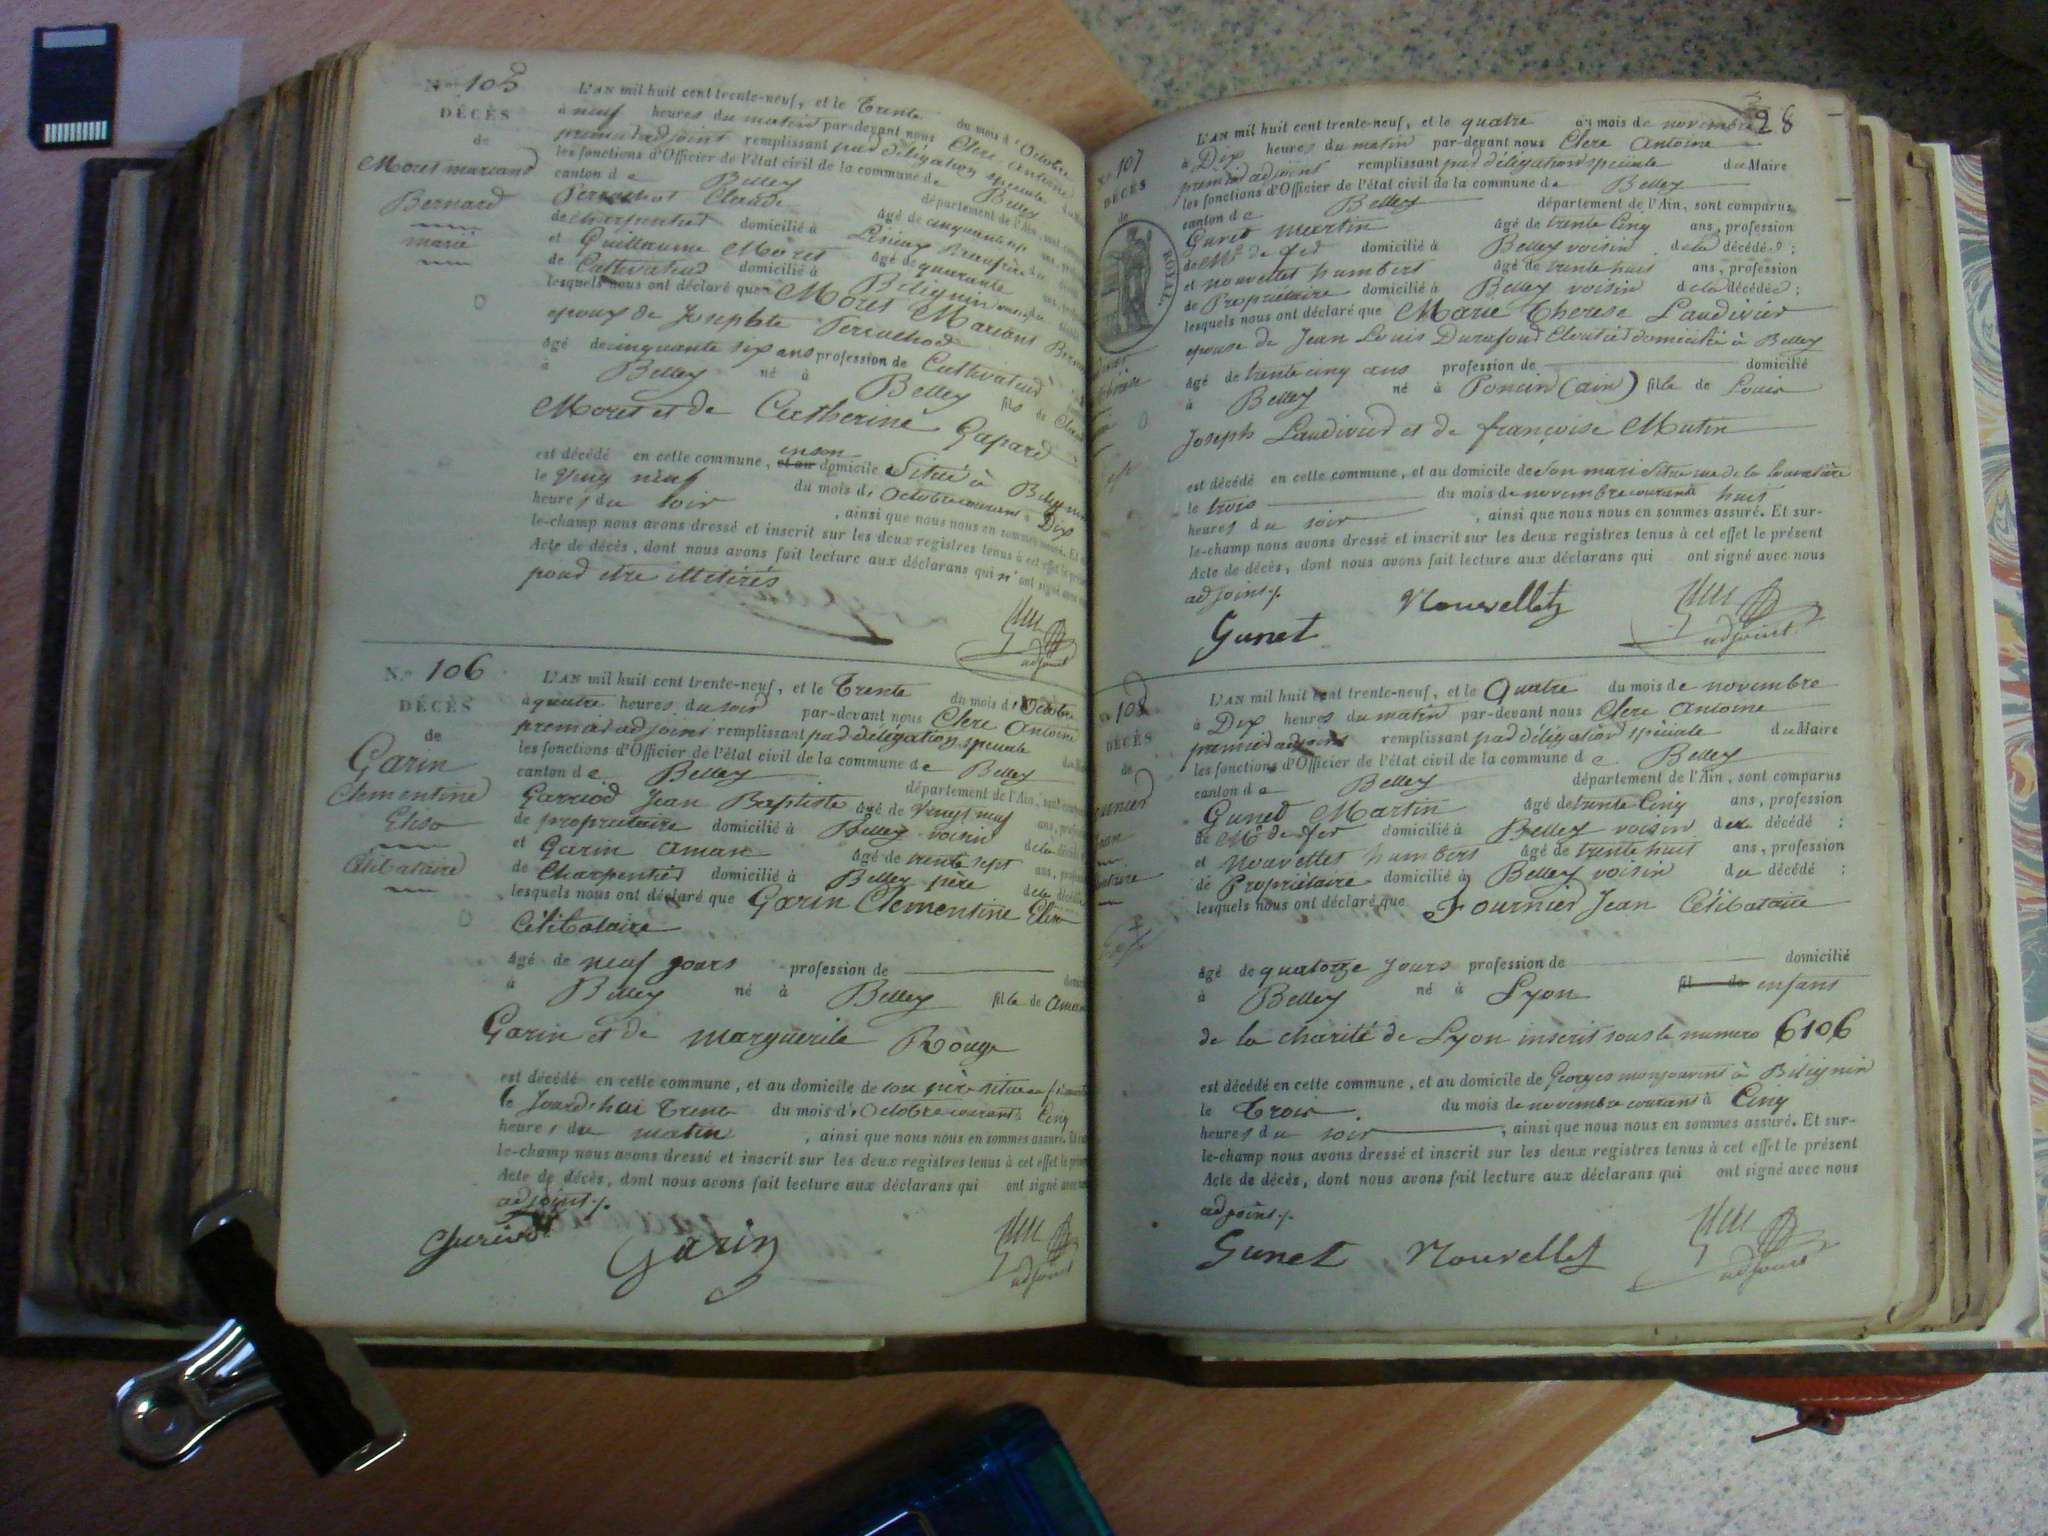 N.o 105
DÉCÈS
de
Moret mariand
Bernard
marié
L'AN mil huit cent trente-neuf, et le Trente du mois d'Octobre
à neuf heures du matin par-devant nous Clerc Antoine
premier adjoint remplissant par délégation spéciale
les fonctions d'Officier de l'état civil de la commune de Belley
canton de Belley département de l'Ain, sont
Perrachod Claude âgé de cinquante
de charpentier domicilié à
et Guillaume Moret âgé de quarante
de Cultivateur domicilié à Bitignin
lesquels nous ont déclaré que Moret Marians
epoux de Josephte Perrachod
âgé de cinquante six ans profession de Cultivateur
à Belley né à Belley fils de
Moret et de Catherine Gapard
est décédé en cette commune, et au enson domicile Situé à
le Vingt neuf du mois d'Octobre courant à Dix
heures du soir , ainsi que nous nous en sommes assuré. Et
le-champ nous avons dressé et inscrit sur les deux registres tenus à cet effet le
Acte de décès, dont nous avons fait lecture aux déclarans qui n'ont signé
pour etre illitirés
adjoint
N.o 106
DÉCÈS
de
Garin
Clementine
Elisa
Célibataire
L'AN mil huit cent trente-neuf, et le Trente du mois d'Octobre
à quatre heures du soir par-devant nous Clerc Antoine
premier adjoint remplissant par délégation spéciale
les fonctions d'Officier de l'état civil de la commune de Belley
canton de Belley département de l'Ain, sont
Garriod Jean Baptiste âgé de Vingt neuf
de propriétaire domicilié à Belley voisin
et Garin Amant âgé de trente sept ans,
de Charpentier domicilié à Belley père
lesquels nous ont déclaré que Garin Clementine Elisa
Célibataire
âgé de neuf jours profession de
à Belley né à Belley fille de
Garin et de marguerite Rouge
est décédé en cette commune, et au domicile de son père situé
le Jourd'hui Trente du mois d'Octobre courant à Cinq
heures du matin , ainsi que nous nous en sommes assuré.
le-champ nous avons dressé et inscrit sur les deux registres tenus à cet effet le
Acte de décès, dont nous avons fait lecture aux déclarans qui ont signé
adjoint
Garin
adjoint
28
107
DÉCÈS
de
ROYAL
L'AN mil huit cent trente-neuf, et le quatre du mois de novembre
à Dix heures du matin par-devant nous Clerc Antoine
premier adjoint remplissant par délégation spéciale du Maire
les fonctions d'Officier de l'état civil de la commune de Belley
canton de Belley département de l'Ain, sont comparus
Gunet martin âgé de trente Cinq ans, profession
de Md de fer domicilié à Belley voisin de la décédée;
et nouvellet humbert âgé de trente huit ans, profession
de Propriétaire domicilié à Belley voisin de la décédée;
lesquels nous ont déclaré que Marie Therese Laudivier
epouse de Jean Louis Durafour domicilié à Belley
âgé de trente cinq ans profession de domicilié
à Belley né à Poncin (ain) fille de Louis
Joseph Laudivier et de françoise Mutin
est décédé en cette commune, et au domicile de son mari situé rue de la
le trois du mois de novembre courant huit
heures du soir , ainsi que nous nous en sommes assuré. Et sur-
le-champ nous avons dressé et inscrit sur les deux registres tenus à cet effet le présent
Acte de décès, dont nous avons fait lecture aux déclarans qui ont signé avec nous
adjoint./.
Gunet Nouvellet
adjoint
108
DÉCÈS
de
L'AN mil huit cent trente-neuf, et le Quatre du mois de novembre
à Dix heures du matin par-devant nous Clerc Antoine
premier adjoint remplissant par délégation spéciale du Maire
les fonctions d'Officier de l'état civil de la commune de Belley
canton de Belley département de l'Ain, sont comparus
Gunet Martin âgé de trente Cinq ans, profession
de Md de fer domicilié à Belley voisin du décédé;
et Nouvellet humbert âgé de trente huit ans, profession
de Propriétaire domicilié à Belley voisin du décédé;
lesquels nous ont déclaré que Fournier Jean Célibataire
âgé de quatorze jours profession de domicilié
à Belley né à Lyon fil de enfant
de la charité de Lyon inscrit sous le numero 6106
est décédé en cette commune, et au domicile de Georges monjouvent à Bitignin
le Trois du mois de novembre courant à Cinq
heures du soir , ainsi que nous nous en sommes assuré. Et sur-
le-champ nous avons dressé et inscrit sur les deux registres tenus à cet effet le présent
Acte de décès, dont nous avons fait lecture aux déclarans qui ont signé avec nous
adjoint./.
Gunet Nouvellet
adjoint